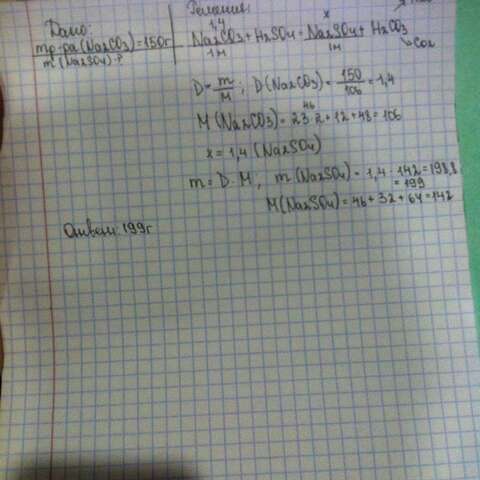 Дано:
mр-ра(Na2CO3)=150г
m(Na2SO4)-?
Решение:
1,4 x
Na2CO3 + H2SO4 = Na2SO4 + H2CO3
1м 1м → CO2
D = m/M ; D(Na2CO3) = 150/106 = 1,4
46
M(Na2CO3) = 23·2+12+48=106
x = 1,4 (Na2SO4)
m = D·M, m(Na2SO4) = 1,4·142=198,8
= 199
M(Na2SO4) = 46+32+64=142
Ответ: 199г